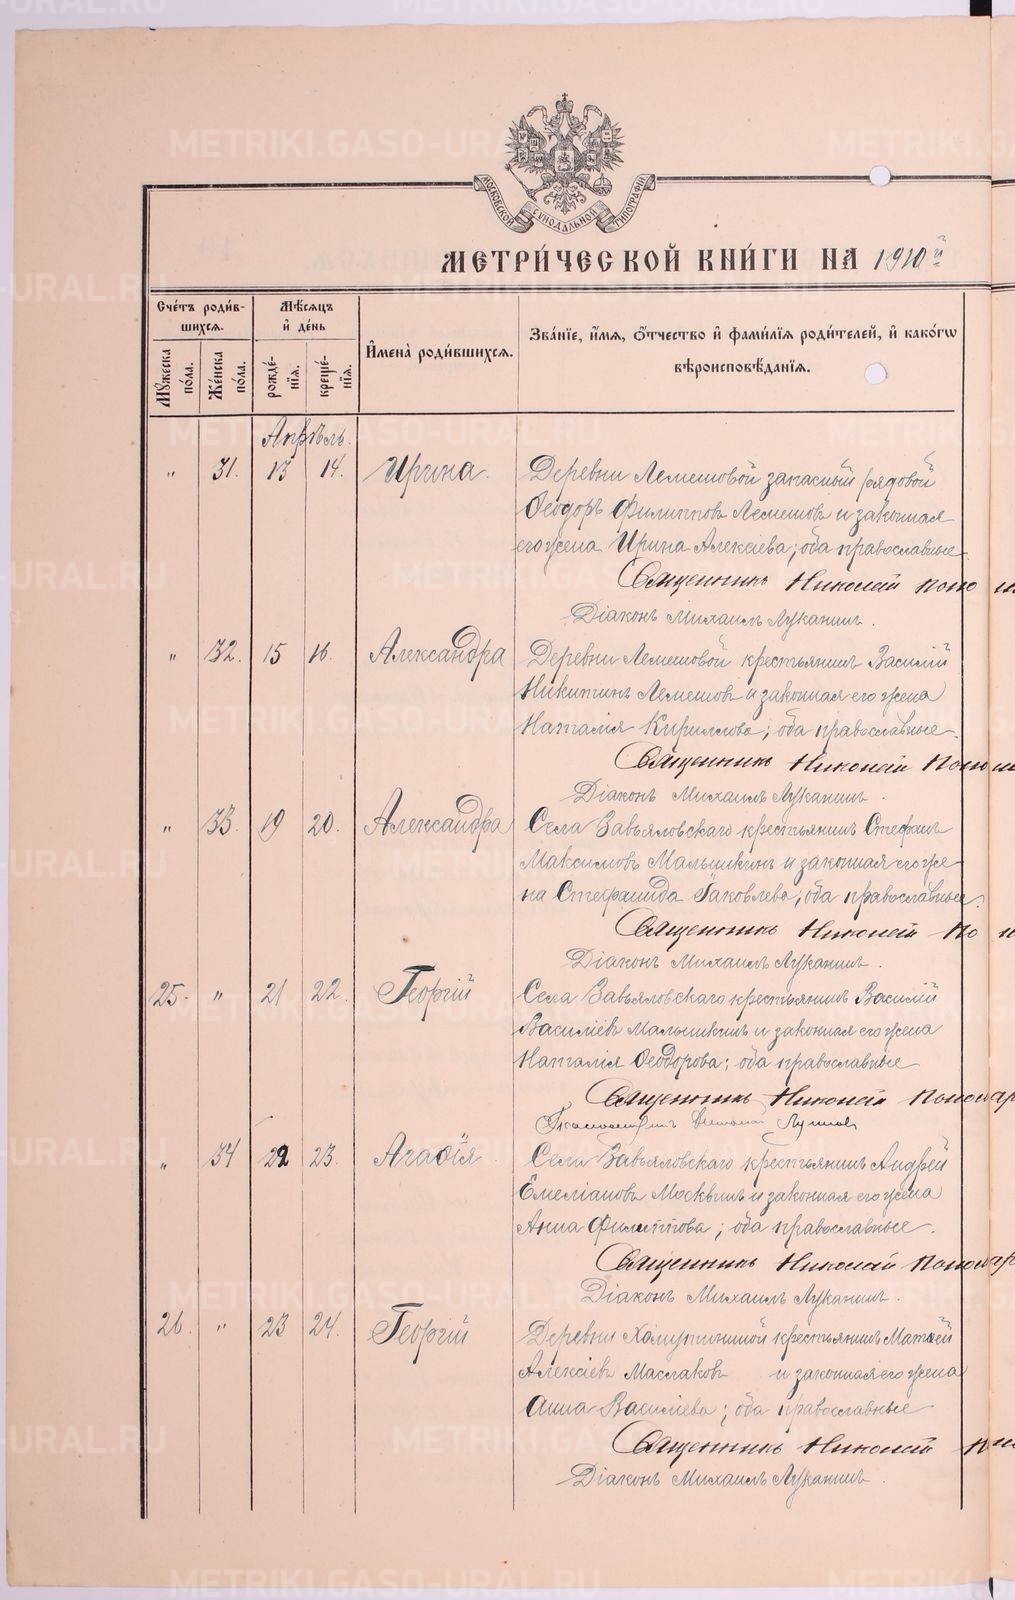 METRIKI.GASO-URAL.RU
МОСКОВСКОЙ СУНОДАЛЬНОЙ ТИПОГРАФІИ
МЕТРИ́ЧЕСКОЙ КНИ́ГИ НА 1910й
Сче́тъ роди́в-
шихсѧ.
Мѣсѧцъ
и҆ де́нь
И҆мена̀ роди́вшихсѧ.
Зва́нїе, и҆́мѧ, ѻ҆́тчество и҆ фами́лїѧ роди́телей, и҆ како́гѡ
вѣроисповѣ́данїѧ.
Мꙋ́жеска
по́ла.
Же́нска
по́ла.
рожде́-
нїѧ.
креще́-
нїѧ.
Апрѣль.
" 31. 13 14. Ирина. Деревни Лемешовой запасный рядовой
Ѳеодоръ Филипповъ Лемешовъ и законная
его жена Ирина Алексіева; оба православные
Священникъ Николай
Діаконъ Михаилъ Луканинъ.
" 32. 15 16. Александра Деревни Лемешовой крестьянинъ Василій
Никитинъ Лемешовъ и законная его жена
Наталія Кириллова; оба православные.
Священникъ Николай
Діаконъ Михаилъ Луканинъ.
" 33. 19 20. Александра Села Завьяловскаго крестьянинъ Стефанъ
Максимовъ Малышкинъ и законная его же-
на Стефанида Іаковлева; оба православные.
Священникъ Николай
Діаконъ Михаилъ Луканинъ.
25. " 21 22. Георгій Села Завьяловскаго крестьянинъ Василій
Василіевъ Малышкинъ и законная его жена
Наталія Ѳеодорова; оба православные
Священникъ Николай Пономар
Псаломщикъ
" 34 22 23. Агаѳія Села Завьяловскаго крестьянинъ Андрей
Емеліановъ Москвинъ и законная его жена
Анна Филиппова; оба православные.
Священникъ Николай Пономар
Діаконъ Михаилъ Луканинъ.
26. " 23 24. Георгій Деревни Хомутининой крестьянинъ Матѳей
Алексіевъ Маслаковъ и законная его жена
Анна Василіева; оба православные
Священникъ Николай
Діаконъ Михаилъ Луканинъ.